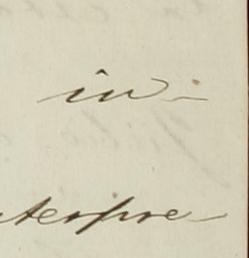 in-
terpre-